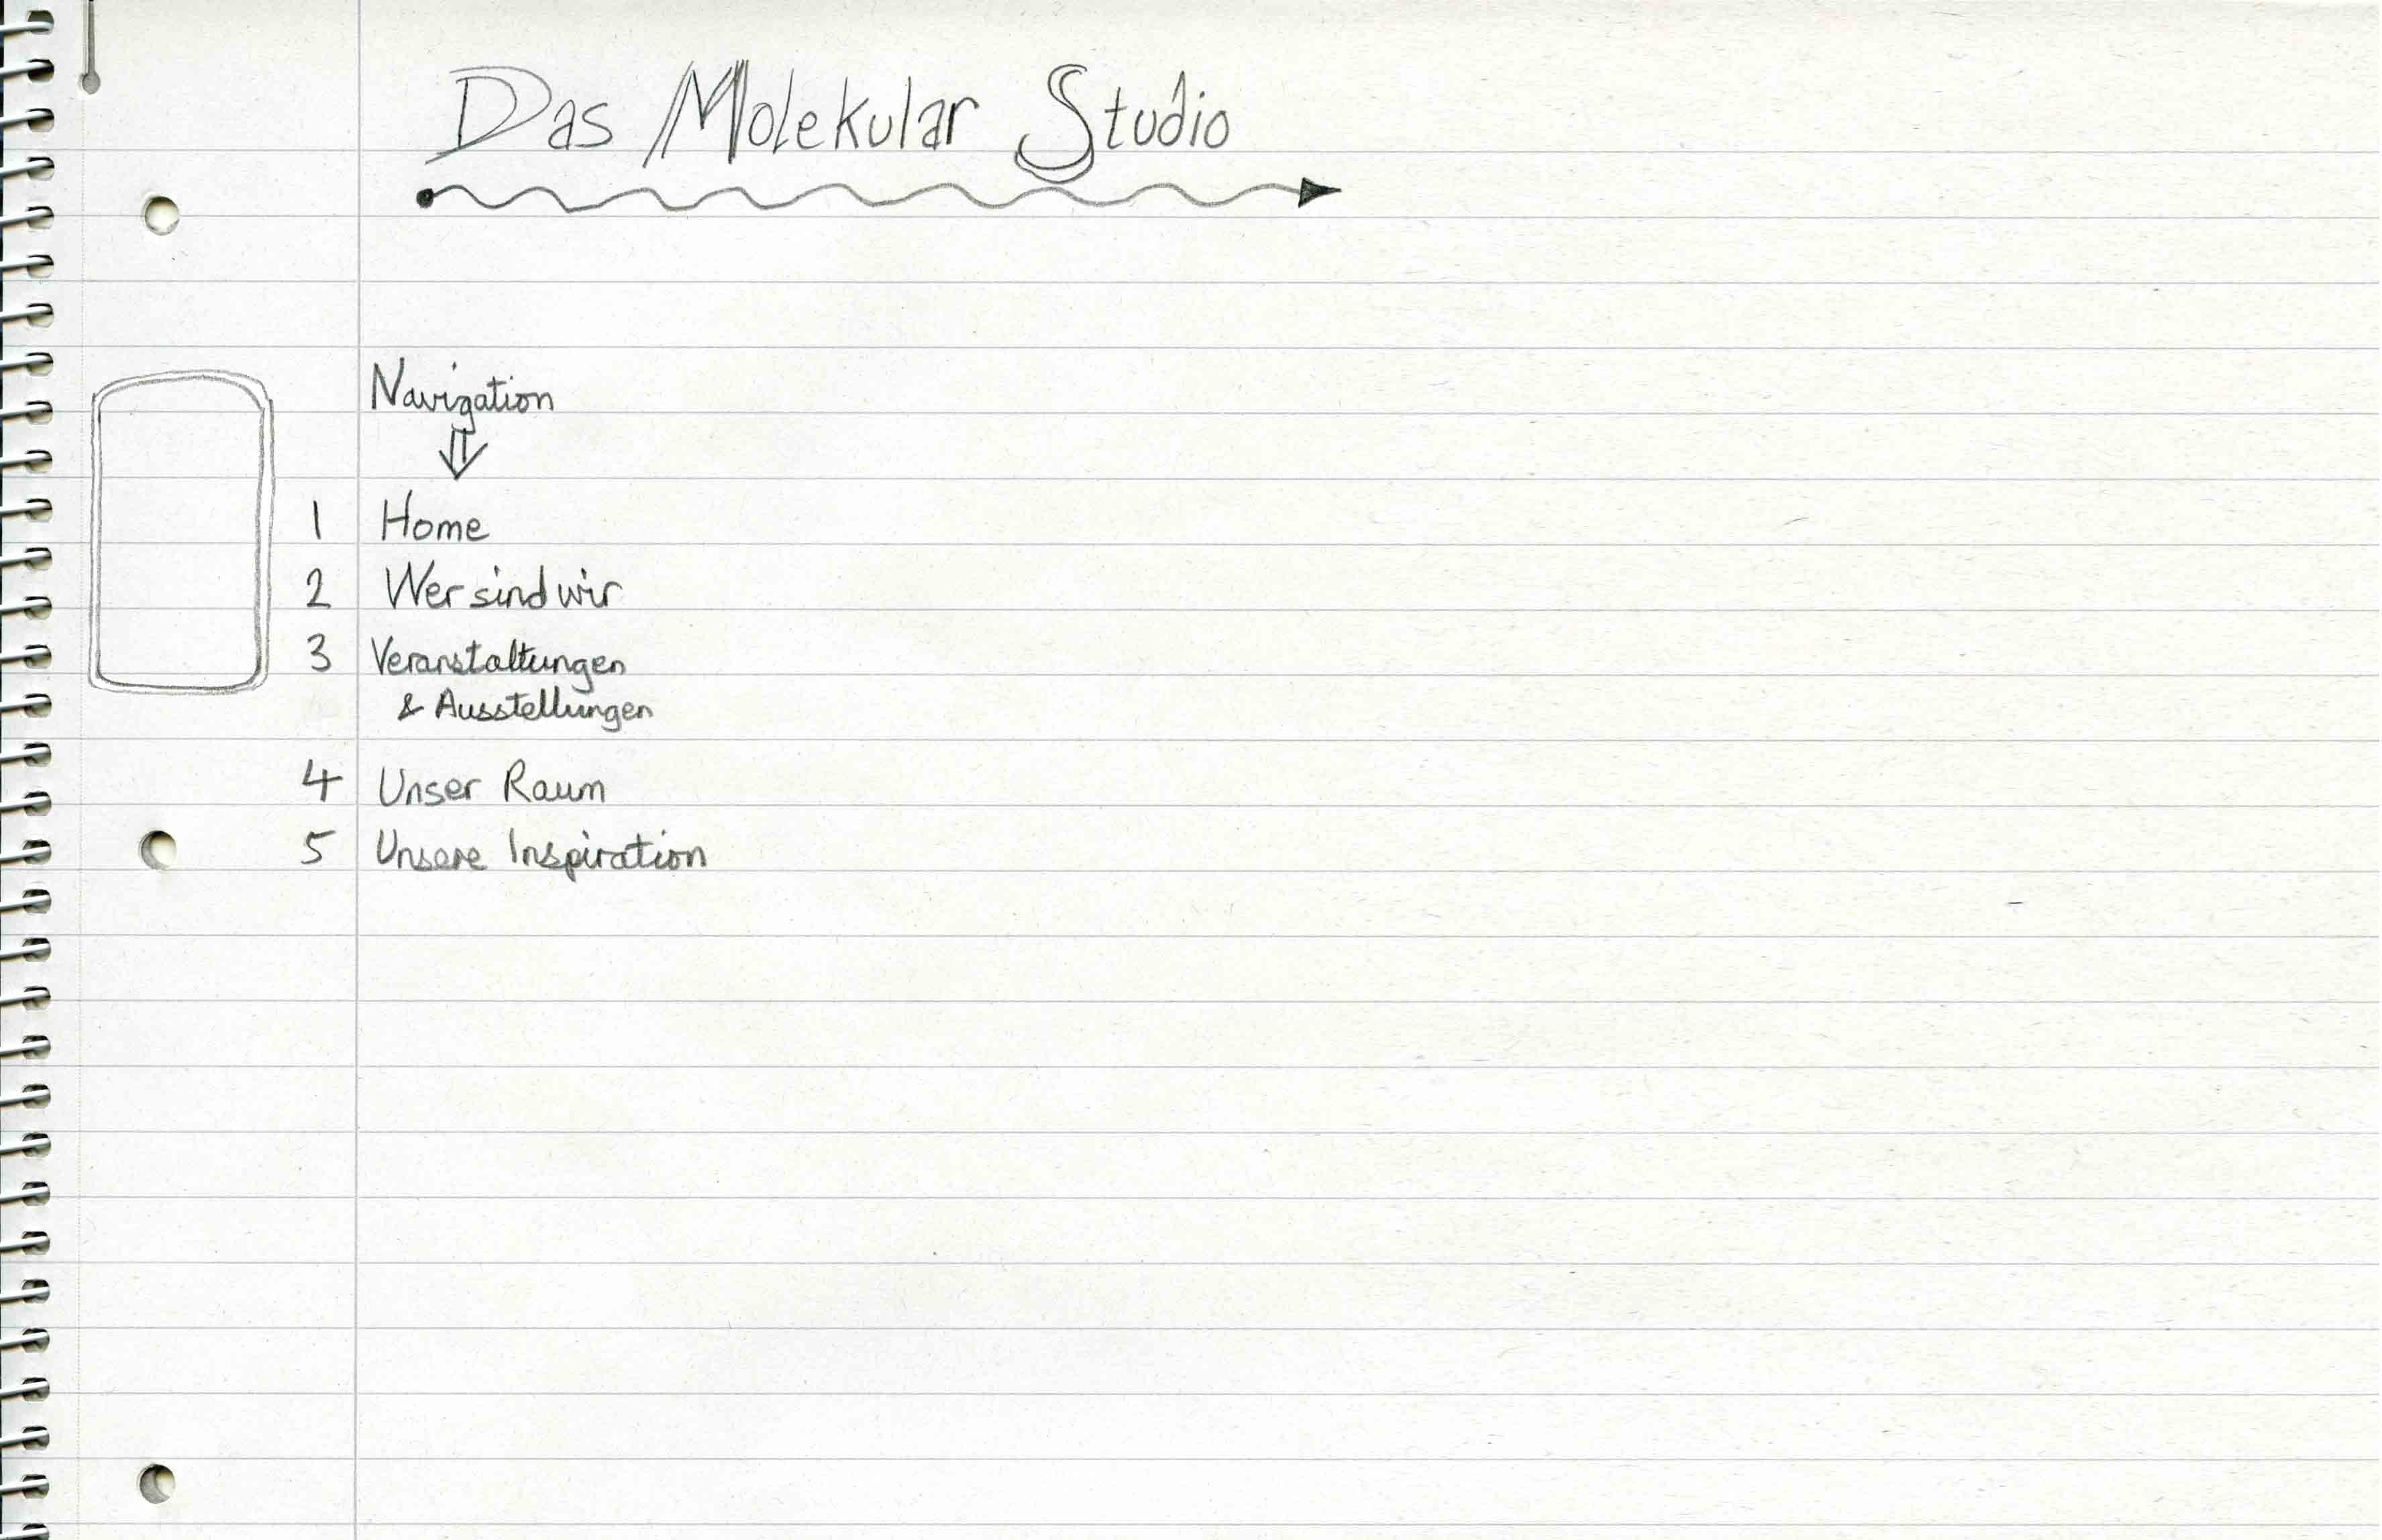 Das Molekular Studio
Navigation
1 Home
2 Wer sind wir
3 Veranstaltungen
& Ausstellungen
4 Unser Raum
5 Unsere Inspiration